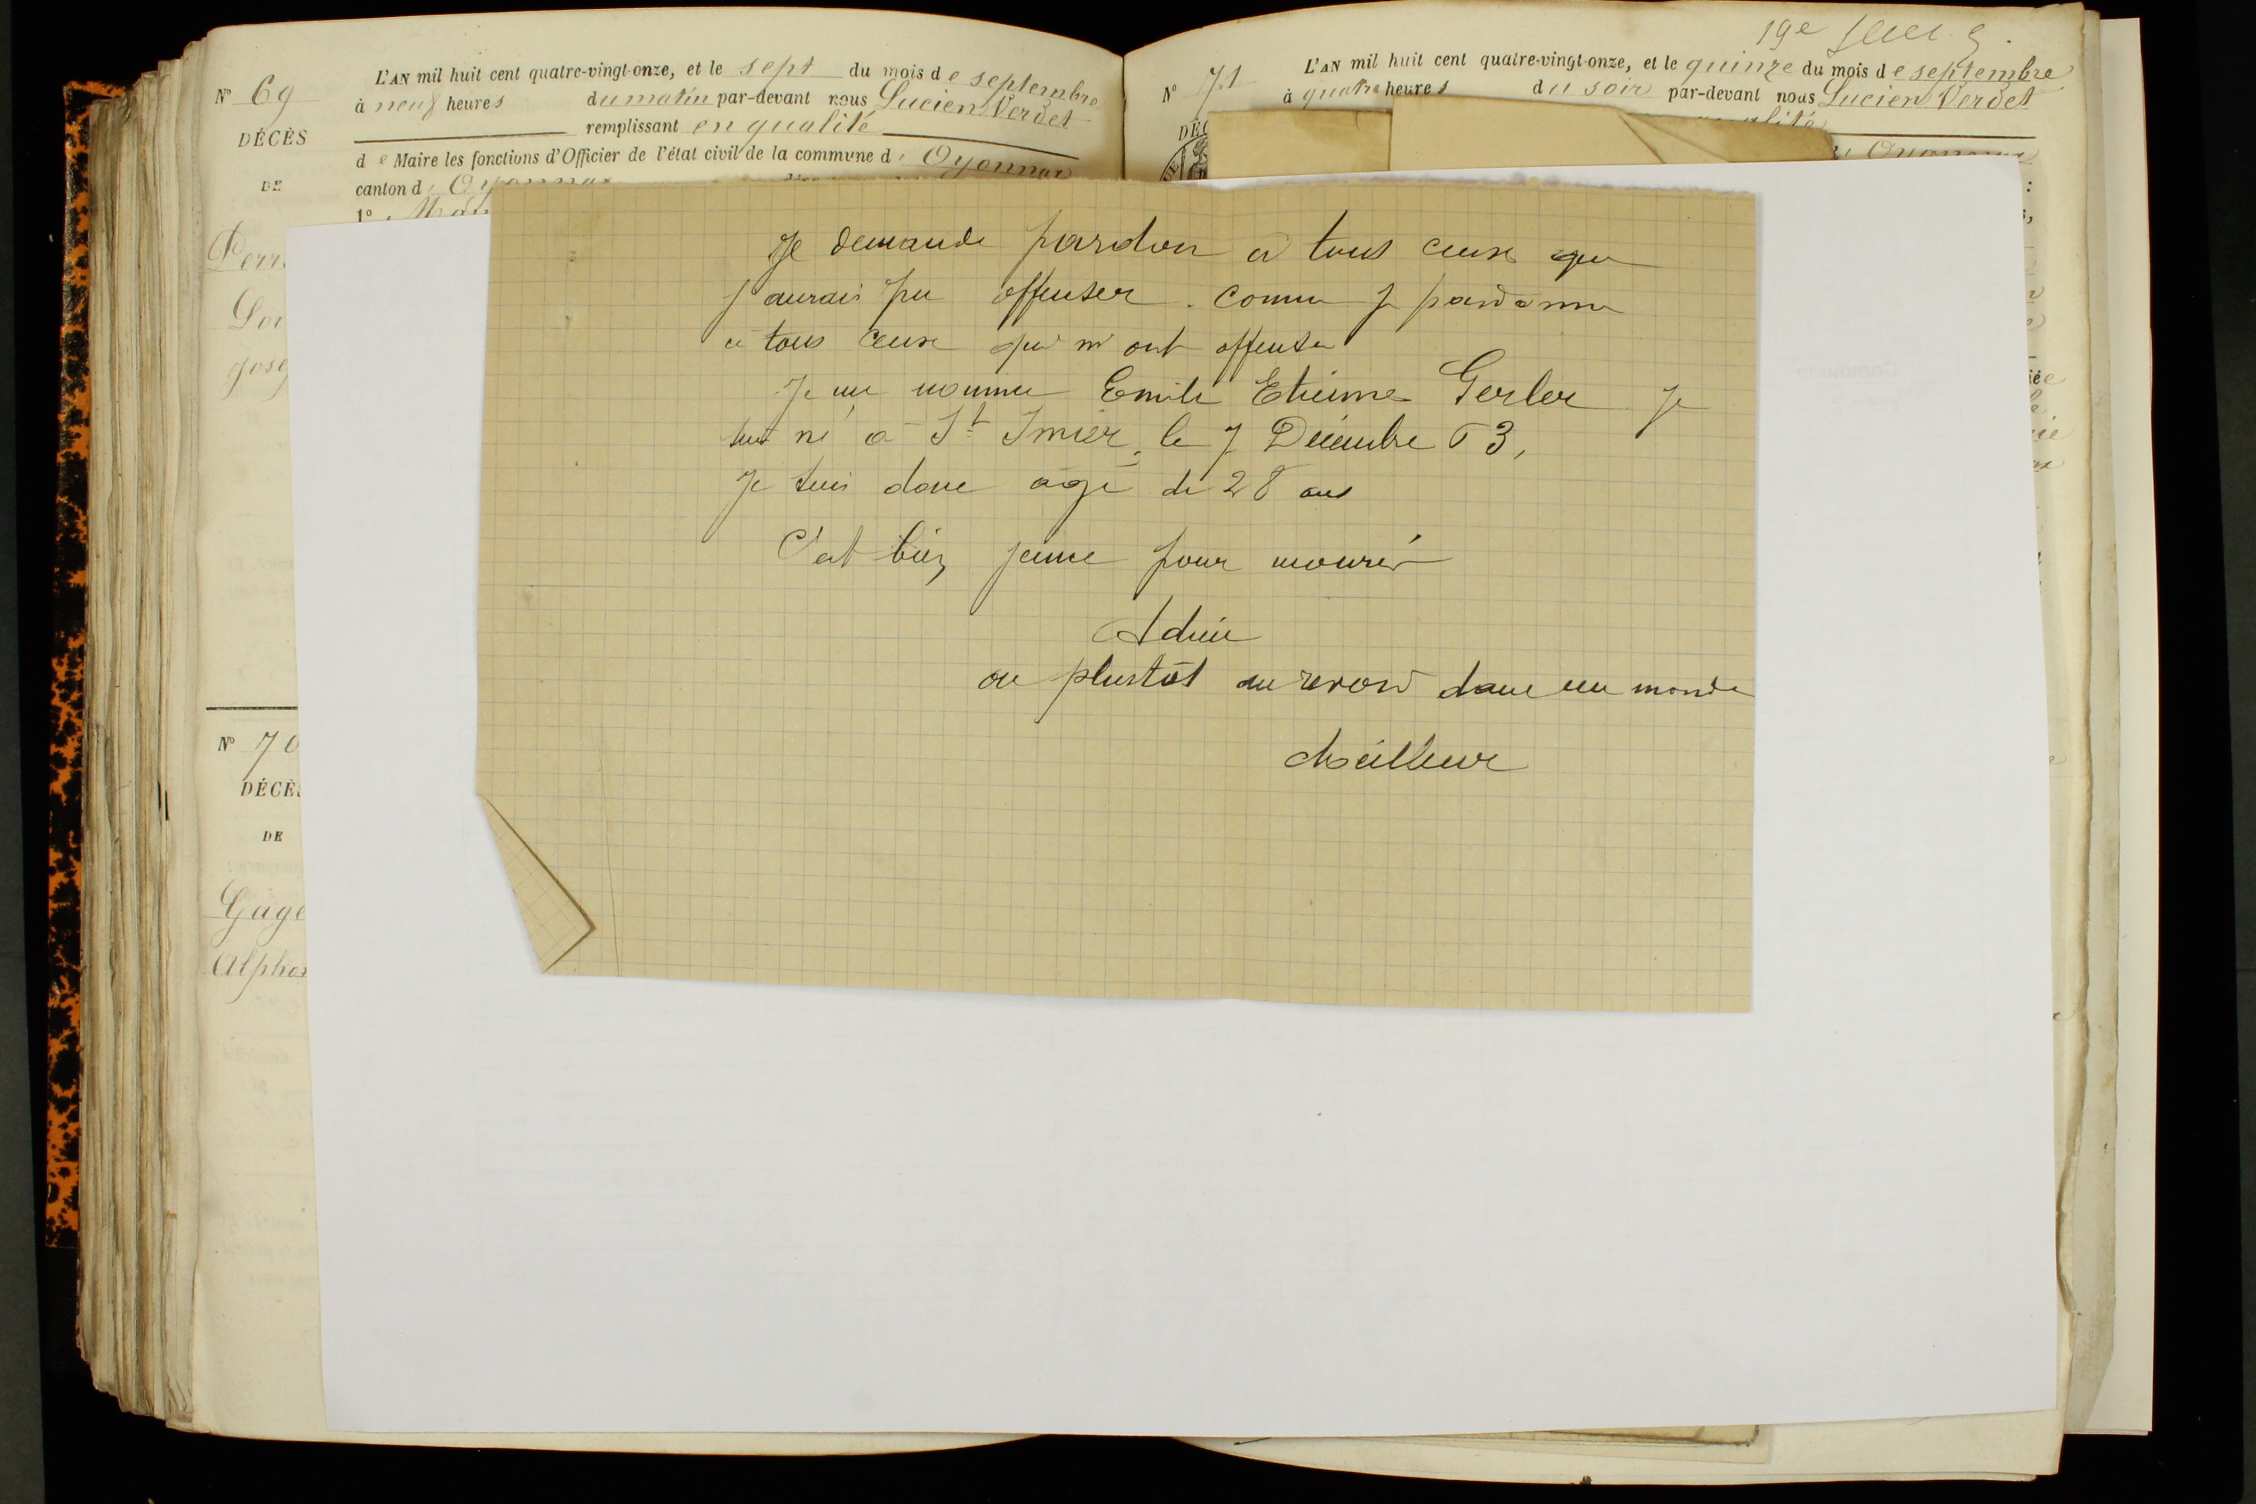 N° 69
DÉCÈS
DE
Perr
Loi
Jose
L'AN mil huit cent quatre-vingt-onze, et le sept du mois de septembre
à neuf heures du matin par-devant nous Lucien Verdet
remplissant en qualité
de Maire les fonctions d'Officier de l'état civil de la commune d'Oyonnax
canton d'Oyonnax
1°
N° 70
DÉCÈS
DE
Gage
Alphon
19e
N° 71
DÉC
L'AN mil huit cent quatre-vingt-onze, et le quinze du mois de septembre
à quatre heures du soir par-devant nous Lucien Verdet
Oyonnax
Je demande pardon a tous ceux que
j'aurais pu offenser. comme je pardonne
a tous ceux qui m'ont offensé
Je me nomme Emile Etienne Gerber Je
suis né a St Imier, le 7 Décembre 63,
Je suis donc agé de 28 ans
C'est bien jeune pour mourir
Adieu
ou plustôt au revoir dans un monde
Meilleur